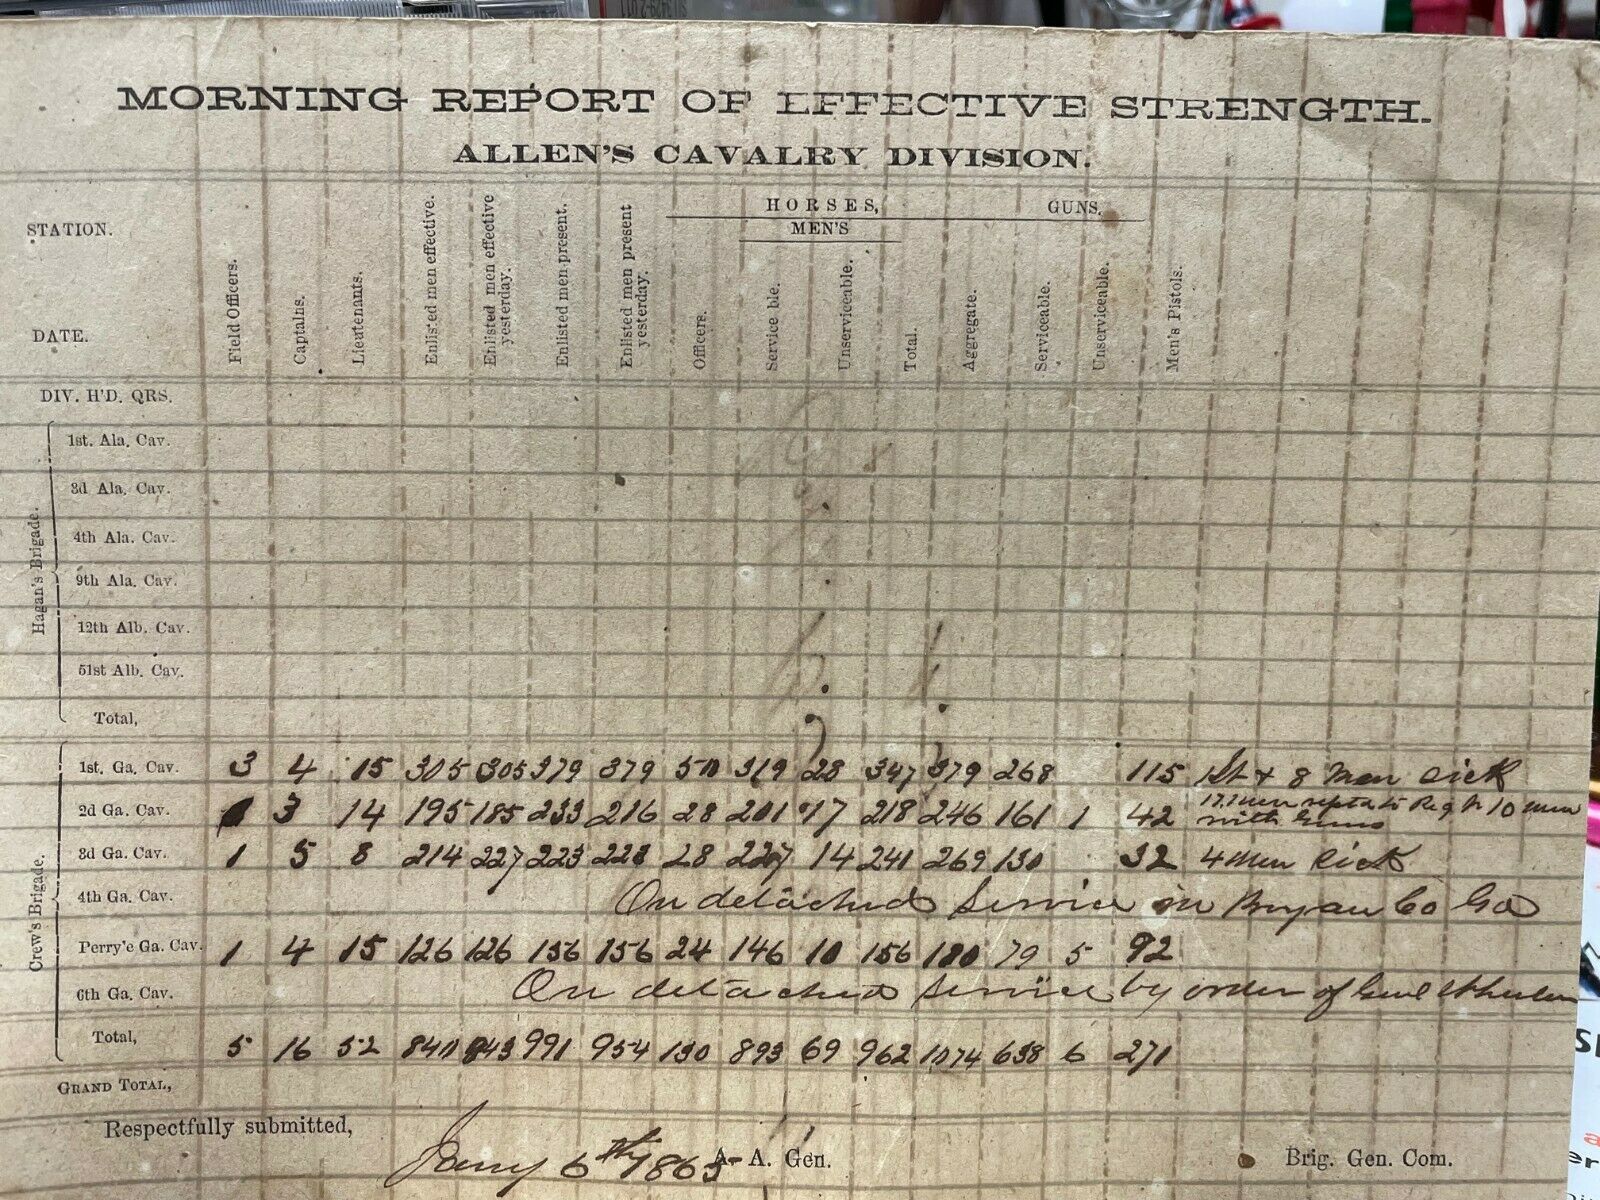 MORNING REPORT OF EFFECTIVE STRENGTH.
ALLEN'S CAVALRY DIVISION.
STATION.
DATE.
Field Officers.
Captains.
Lieutenants.
Enlisted men effective.
Enlisted men effective yesterday.
Enlisted men present.
Enlisted men present yesterday.
HORSES,
MEN'S
Officers.
Service ble.
Unserviceable.
Total.
Aggregate.
GUNS.
Serviceable.
Unserviceable.
Men's Pistols.
DIV. H'D. QRS.
Hagan's Brigade.
1st. Ala. Cav.
3d Ala. Cav.
4th Ala. Cav.
9th Ala. Cav.
12th Alb. Cav.
51st Alb. Cav.
Total,
Crew's Brigade.
1st. Ga. Cav. 3 4 15 305 305 379 379 50 319 28 347 379 268 115 1 Lt & 8 men sick
2d Ga. Cav. 3 14 195 185 233 216 28 201 17 218 246 161 1 42 10 men with Guns
3d Ga. Cav. 1 5 8 214 227 223 228 28 227 14 241 269 130 32 4 men sick
4th Ga. Cav. On detached Service in Bryan Co Ga
Perry'e Ga. Cav. 1 4 15 126 126 156 156 24 146 10 156 180 79 5 92
6th Ga. Cav. On detached Service by order of Genl Wheeler
Total, 5 16 52 840 843 991 954 130 893 69 962 1074 638 6 271
GRAND TOTAL,
Respectfully submitted,
Jany 6th 1865
A. A. Gen.
Brig. Gen. Com.